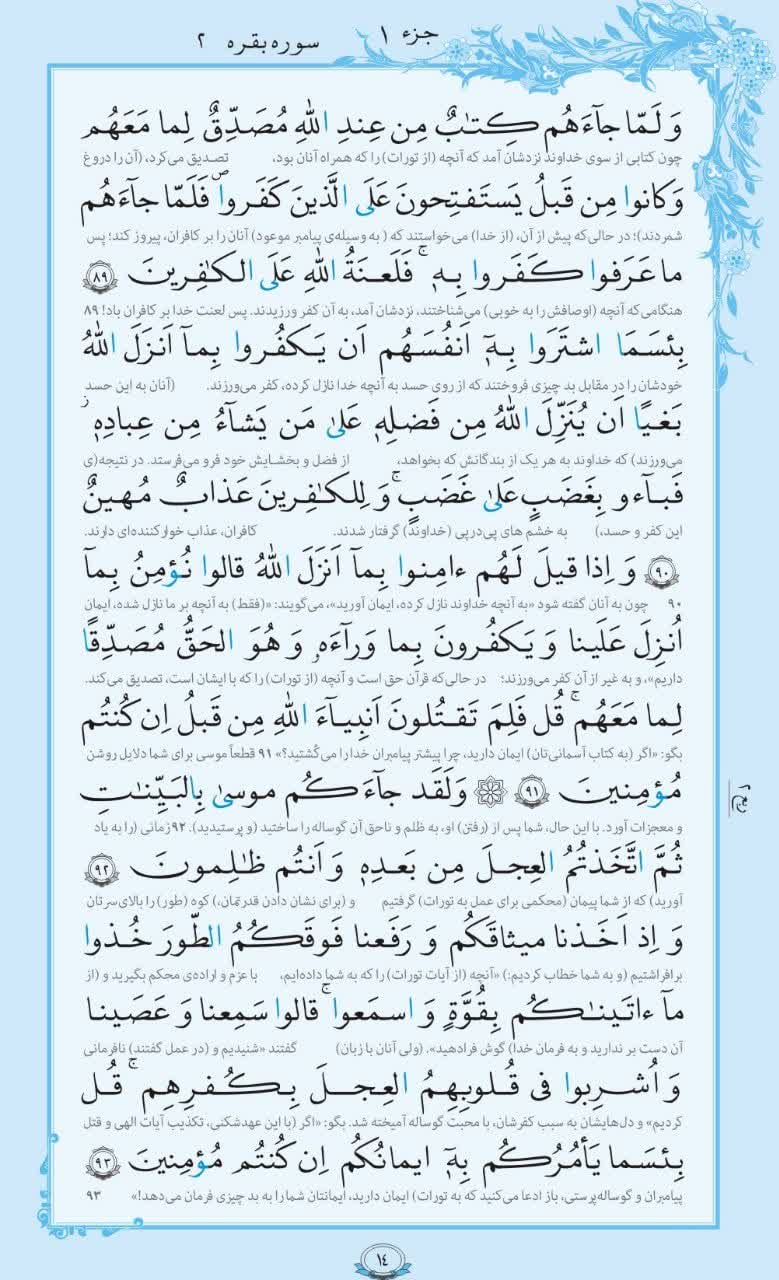 جزء ۱
سوره بقره ۲
وَ لَمّا جآءَهُم كِتٰبٌ مِن عِندِ اللهِ مُصَدِّقٌ لِما مَعَهُم
چون کتابی از سوی خداوند نزدشان آمد که آنچه (از تورات) را که همراه آنان بود، تصدیق می‌کرد، (آن را دروغ
وَ كانوا مِن قَبلُ يَستَفتِحونَ عَلَى الَّذينَ كَفَروا ۖ فَلَمّا جآءَهُم
شمردند)؛ در حالی‌که پیش از آن، (از خدا) می‌خواستند که (به وسیله‌ی پیامبر موعود) آنان را بر کافران، پیروز کند؛ پس
ما عَرَفوا كَفَروا بِهٖ ۚ فَلَعنَةُ اللهِ عَلَى الكٰفِرينَ ﴿۸۹﴾
هنگامی‌که آنچه (اوصافش را به خوبی) می‌شناختند، نزدشان آمد، به آن کفر ورزیدند. پس لعنت خدا بر کافران باد! ۸۹
بِئسَمَا اشتَرَوا بِهٖٓ اَنفُسَهُم اَن يَكفُروا بِمآ اَنزَلَ اللهُ
خودشان را در مقابل بد چیزی فروختند که از روی حسد به آنچه خدا نازل کرده، کفر می‌ورزند. (آنان به این حسد
بَغيًا اَن يُنَزِّلَ اللهُ مِن فَضلِهٖ عَلىٰ مَن يَشآءُ مِن عِبادِهٖ ز
می‌ورزند) که خداوند به هر یک از بندگانش که بخواهد، از فضل و بخشایش خود فرو می‌فرستد. در نتیجه(ی
فَبآءو بِغَضَبٍ عَلىٰ غَضَبٍ ۚ وَ لِلكٰفِرينَ عَذابٌ مُهينٌ
این کفر و حسد،) به خشم های پی‌درپی (خداوند) گرفتار شدند. کافران، عذاب خوارکننده‌ای دارند.
﴿۹۰﴾ وَ اِذا قيلَ لَهُم ءامِنوا بِمآ اَنزَلَ اللهُ قالوا نُؤمِنُ بِمآ
۹۰ چون به آنان گفته شود «به آنچه خداوند نازل کرده، ایمان آورید»، می‌گویند: «(فقط) به آنچه بر ما نازل شده، ایمان
اُنزِلَ عَلَينا وَ يَكفُرونَ بِما وَرآءَهٗ وَ هُوَ الحَقُّ مُصَدِّقًا
داریم»، و به غیر از آن کفر می‌ورزند؛ در حالی‌که قرآن حق است و آنچه (از تورات) را که با ایشان است، تصدیق می‌کند.
لِما مَعَهُم ۚ قُل فَلِمَ تَقتُلونَ اَنبِيآءَ اللهِ مِن قَبلُ اِن كُنتُم
بگو: «اگر (به کتاب آسمانی‌تان) ایمان دارید، چرا پیشتر پیامبران خدا را می‌کُشتید؟» ۹۱ قطعاً موسی برای شما دلایل روشن
مُؤمِنينَ ﴿۹۱﴾ وَ لَقَد جآءَكُم موسىٰ بِالبَيِّنٰتِ
و معجزات آورد. با این حال، شما پس از (رفتن) او، به ظلم و ناحق آن گوساله را ساختید (و پرستیدید). ۹۲ زمانی (را به یاد
ربع ۲
ثُمَّ اتَّخَذتُمُ العِجلَ مِن بَعدِهٖ وَ اَنتُم ظٰلِمونَ ﴿۹۲﴾
آورید) که از شما پیمان (محکمی برای عمل به تورات) گرفتیم و (برای نشان دادن قدرتمان،) کوه (طور) را بالای سرتان
وَ اِذ اَخَذنا ميثاقَكُم وَ رَفَعنا فَوقَكُمُ الطّورَ خُذوا
برافراشتیم (و به شما خطاب کردیم:) «آنچه (از آیات تورات) را که به شما داده‌ایم، با عزم و اراده‌ی محکم بگیرید و (از
مآ ءاتَينٰكُم بِقُوَّةٍ وَ اسمَعوا ۚ قالوا سَمِعنا وَ عَصَينا
آن دست بر ندارید و به فرمان خدا) گوش فرادهید». (ولی آنان با زبان) گفتند «شنیدیم و (در عمل گفتند) نافرمانی
وَ اُشرِبوا فى قُلوبِهِمُ العِجلَ بِكُفرِهِم ۚ قُل
کردیم» و دل‌هایشان به سبب کفرشان، با محبت گوساله آمیخته شد. بگو: «اگر (با این عهدشکنی، تکذیب آیات الهی و قتل
بِئسَما يَأمُرُكُم بِهٖٓ ايمانُكُم اِن كُنتُم مُؤمِنينَ ﴿۹۳﴾
پیامبران و گوساله‌پرستی، باز ادعا می‌کنید که به تورات) ایمان دارید، ایمانتان شما را به بد چیزی فرمان می‌دهد!» ۹۳
۱۴